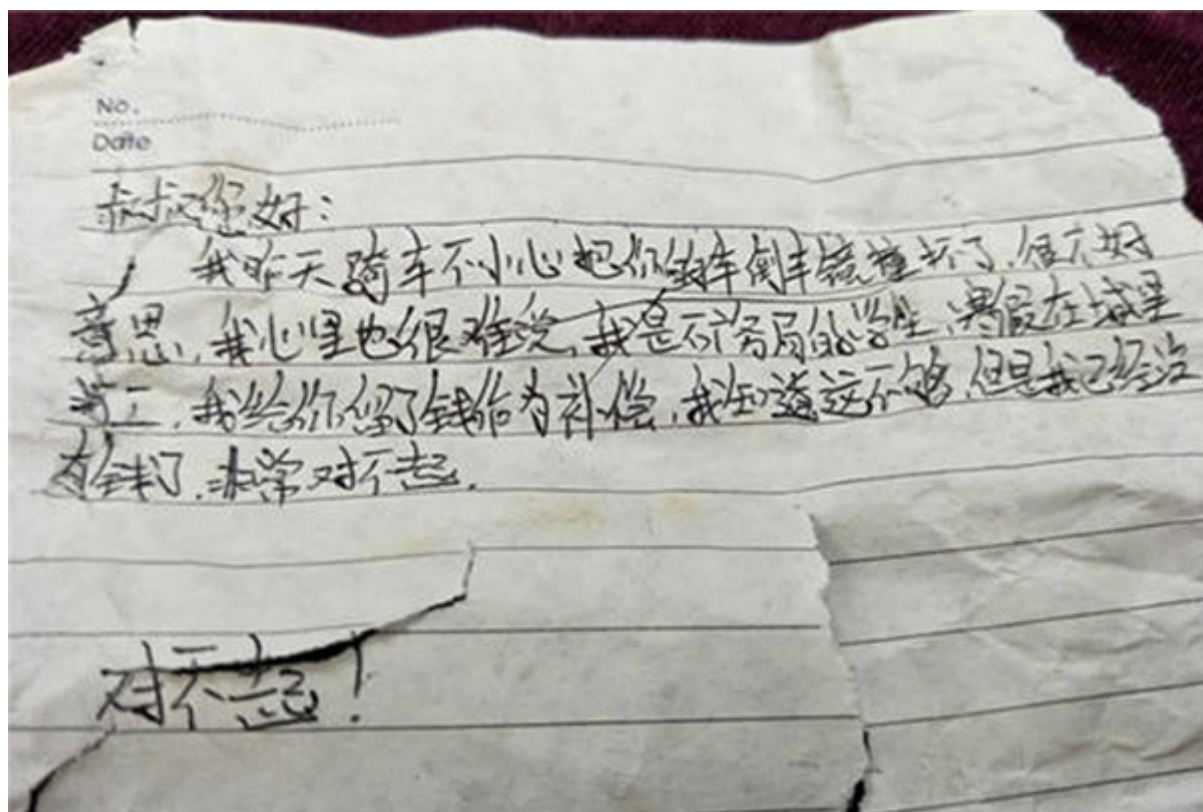 No.
Date
叔叔你好:
我昨天骑车不小心把你的车倒车镜撞坏了,很不好
意思,我心里也很难受,我是矿务局的学生,寒假在城里
打工,我给你留了钱作为补偿,我知道这不够,但是我已经没
有钱了,非常对不起.
对不起!